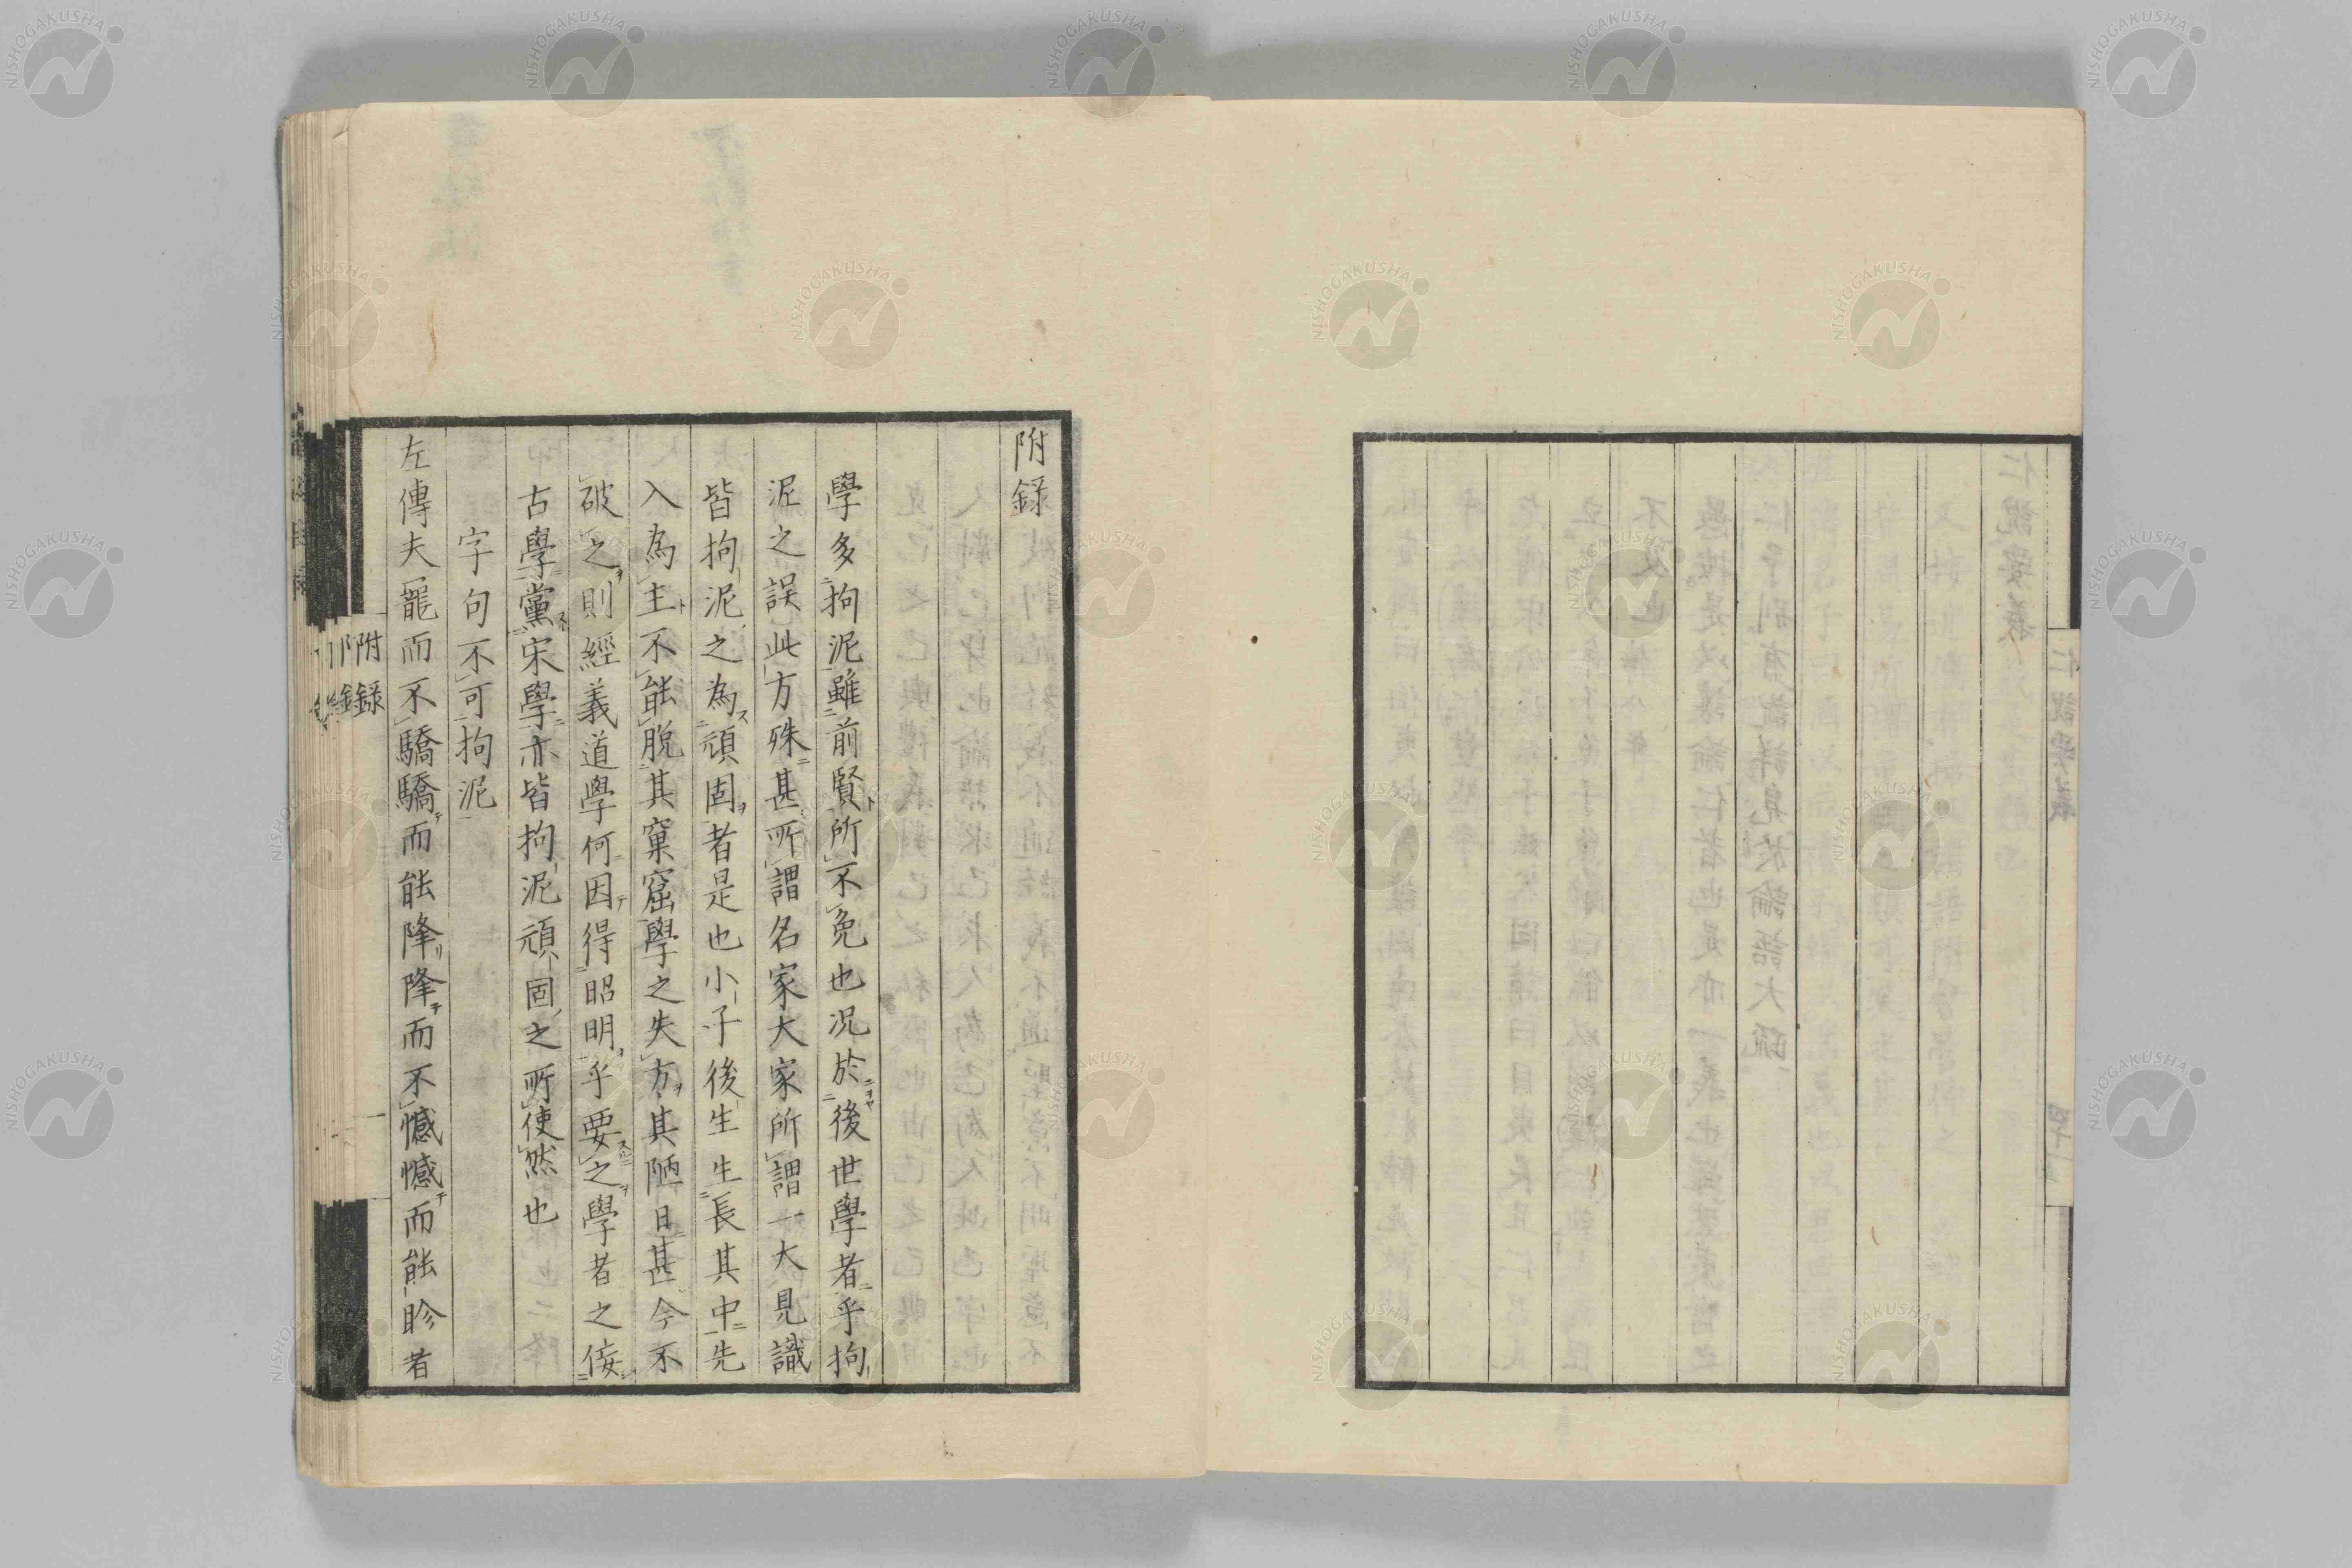 附錄
學多拘泥雖前賢所不免也況於後世學者乎拘
泥之誤此方殊甚所謂名家大家所謂一大見識
皆拘泥之為頑固者是也小子後生生長其中先
入為主不能脫其窠窟學之失方其陋日甚今不
破之則經義道學何因得昭明乎要之學者之倿
古學黨宋學亦皆拘泥頑固之所使然也
字句不可拘泥
左傳夫寵而不驕驕而能降降而不憾憾而能眕者
附錄
NISHOGAKUSHA